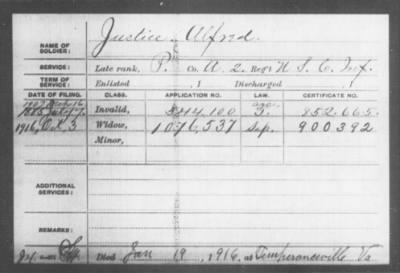 NAME OF SOLDIER: Justice, Alfred.
SERVICE: Late rank, P. Co. A. 2. Reg't U. S. C. Inf.
TERM OF SERVICE: Enlisted , 1 Discharged , 1
DATE OF FILING. CLASS. APPLICATION NO. LAW. CERTIFICATE NO.
Invalid, 544,100 852.665.
1916, Oct. 3 Widow, 1076,537 Sep. 900392
Minor,
ADDITIONAL SERVICES:
REMARKS:
Died Jan 19, 1916, at Temperanceville Va